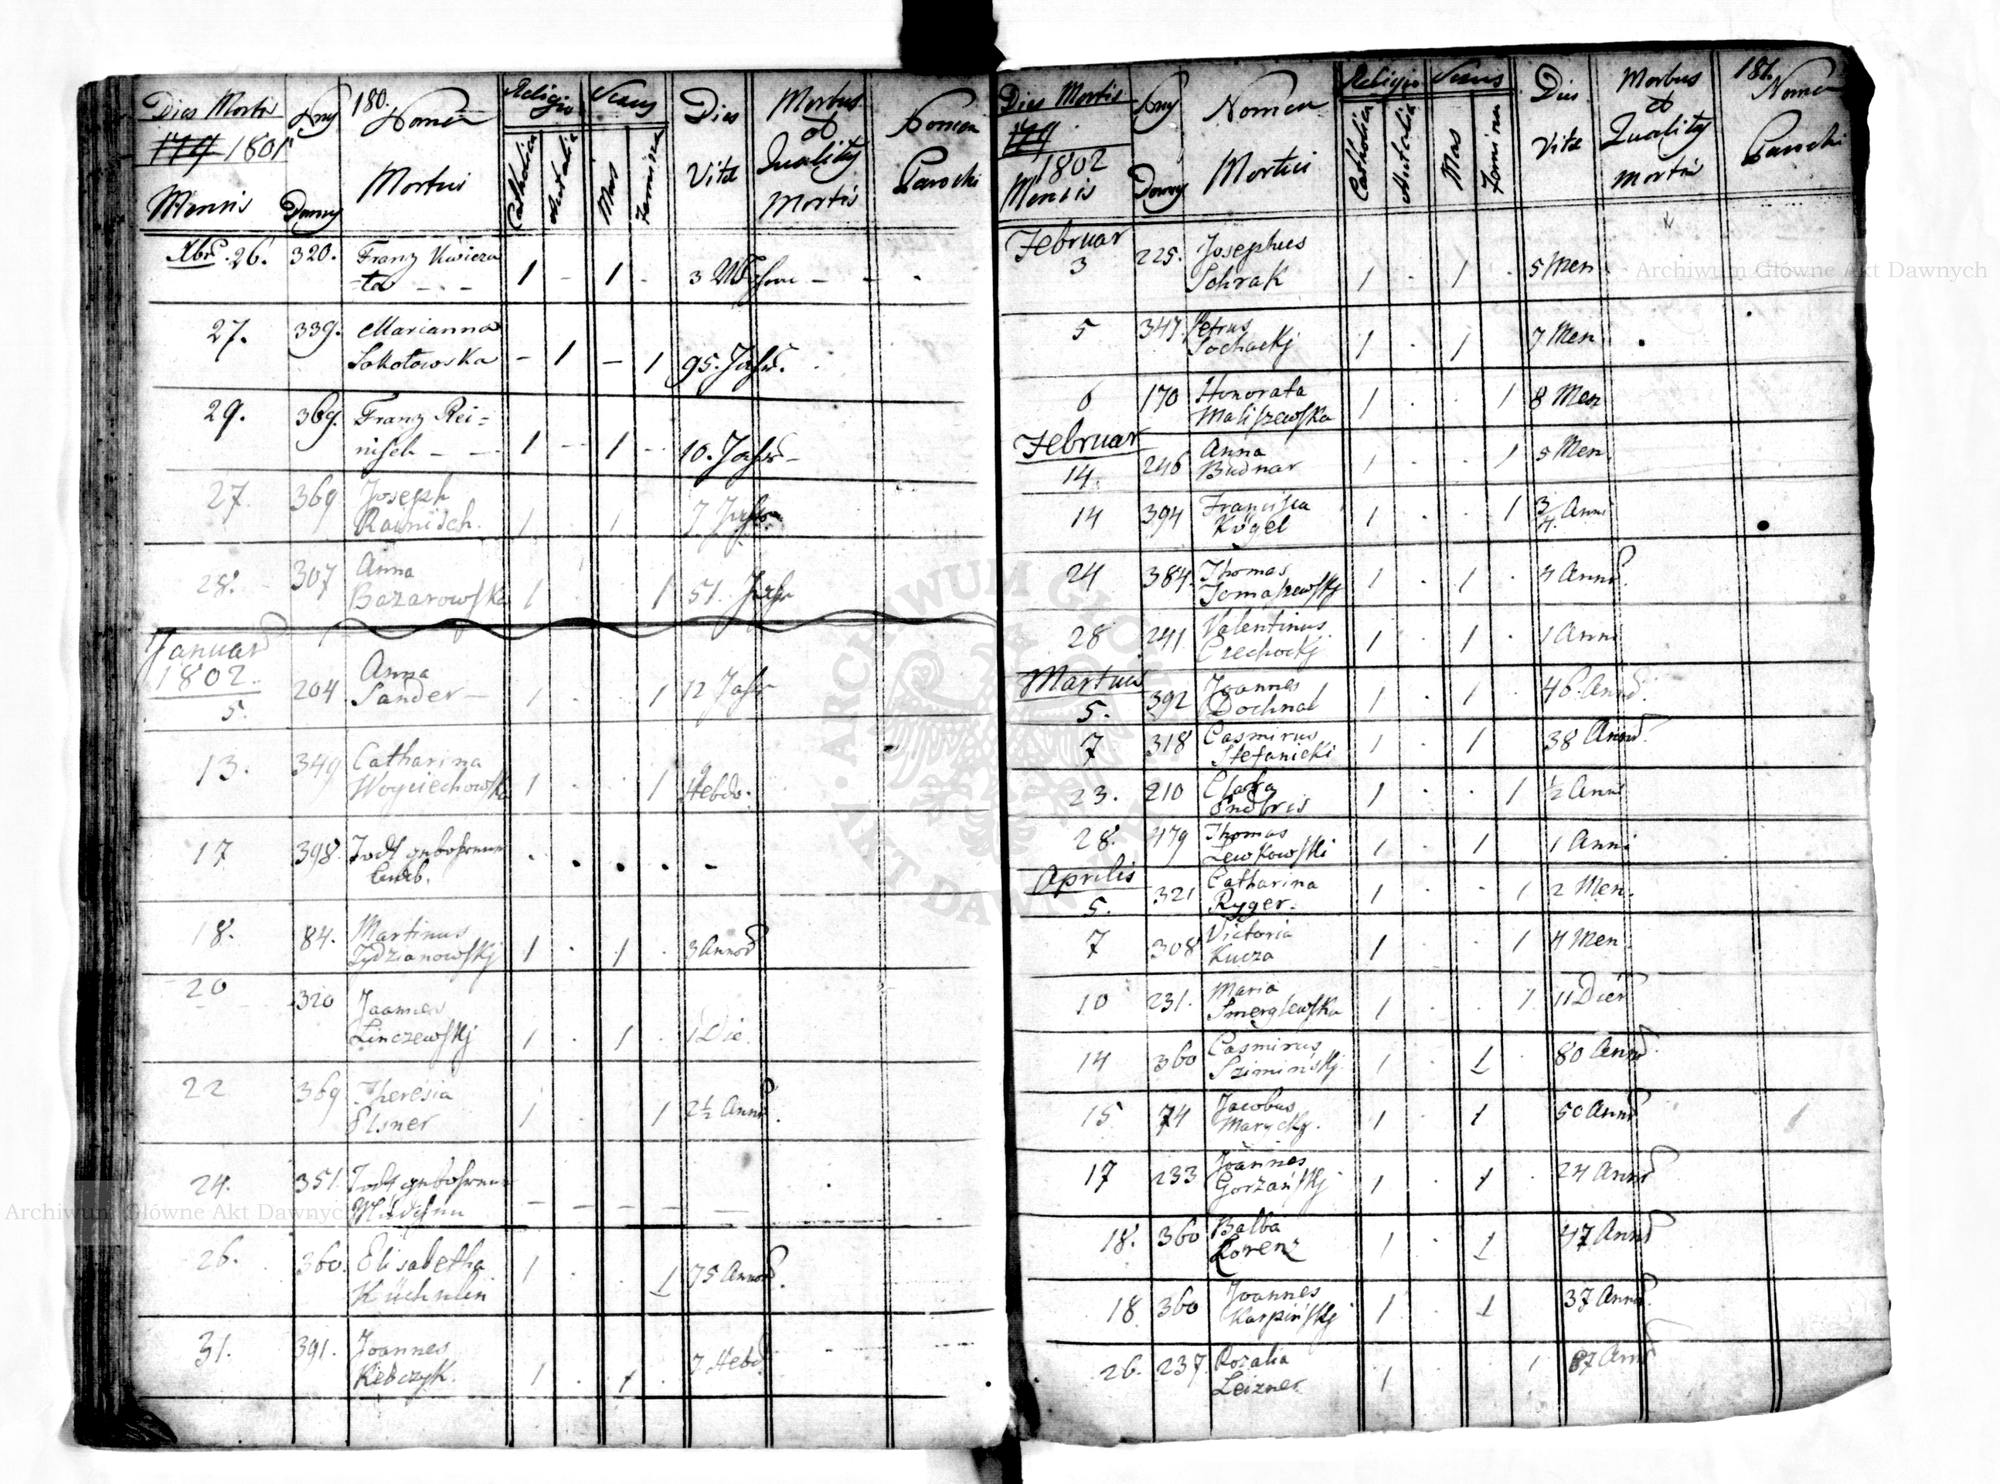 180.
Dies Mortis Religio Sexus
1801
Mensis Nomen Mortui Catholica Mas Dies Vitæ Morbus et Quality mortis Nomen Parochi
Xbr 26. 320. Franz Kwicza
ta - - 1 - 1 - 3
27. 339. Marianna
Sokołowska - 1 - 1 95. Jahr.
29. 369. Franz Rei-
nisch - - 1 - 1 - 10. Jahr
27. 369 Joseph
Rainisch. 1 1 7 Jahr
28. 307 Anna
Bazarowska 1 . . 1 51. Jahr
Januar
1802.
5. 204 Anna
Sander 1 . . 1 12 Jahr
13. 349 Catharina
Woyciechowska 1 . . 1 Hebdo.
17 398. Todt gebohrner
. . . . -
18. 84. Martinus
Tydzianowskj 1 . 1 . 3 Annor
20 320 Joannes
Linczewskj 1 . 1 . 1 Die.
22 369 Theresia
Elsner 1 . . 1 2½ Annor.
24. 351. Todt gebohrnes
Mädchen - - - - -
26. 360. Elisabetha
Küchnlin 1 . . 1 75 Annor.
31. 391. Joannes
Kiebczyk. 1 . 1 . 7 Hebd.
181.
Dies Mortis Religio Sexus
1802
Mensis Nomen Mortui Catholica Mas Femina Dies Vitæ Morbus et Quality mortis Nomen Parochi
Februar
3 225. Josephus
Schrak 1 . 1 . 5 Men
5 347. Petrus
Sochackj 1 . 1 7 Men.
6 170 Honorata
Maliszewska 1 . . 1 8 Men
Februar
14. 246 Anna
Budnar 1 . . 1 5 Men.
14 394 Francisca
Kögel 1 . . 1 3/4. Anni
24 384. Thomas
Tomaszewskj 1 . 1 . 4 Annor.
28 241. Valentinus
Czechockj 1 . 1 . 1 Anni
Martius
5. 392 Joannes
Dochnal 1 . 1 . 46. Annor.
7 318 Casmirus
Stefanicki 1 . 1 38 Annor.
23. 210 Clara
1 . . 1 ½ Anni
28. 479 Thomas
Lewkowski 1 . 1 1 Anni
Aprilis
5. 321 Catharina
Ryger. 1 . . 1 2 Men.
7 308 Victoria
Kucza 1 1 4 Men.
10 231. Maria
Smerglewska 1 . . 1. 11 Dier
14 360 Casmirus
Sziminskj. 1 . 1 . 80 Annor.
15 74 Jacobus
Maryckj. 1 . 1 50 Annor
17 233 Joannes
Gorzańskj 1 . 1 . 24 Annor
18. 360 Balba
Lorenz 1 . 1 47 Annor
18. 360 Joannes
Karpińskj 1 . 1 37 Annor.
26. 237. Rozalia
Leizner 1 1 87 Annor
Archiwum Główne Akt Dawnych
Archiwum Główne Akt Dawnych
ARCHIWUM GŁÓWNE · AKT DAWNYCH ·